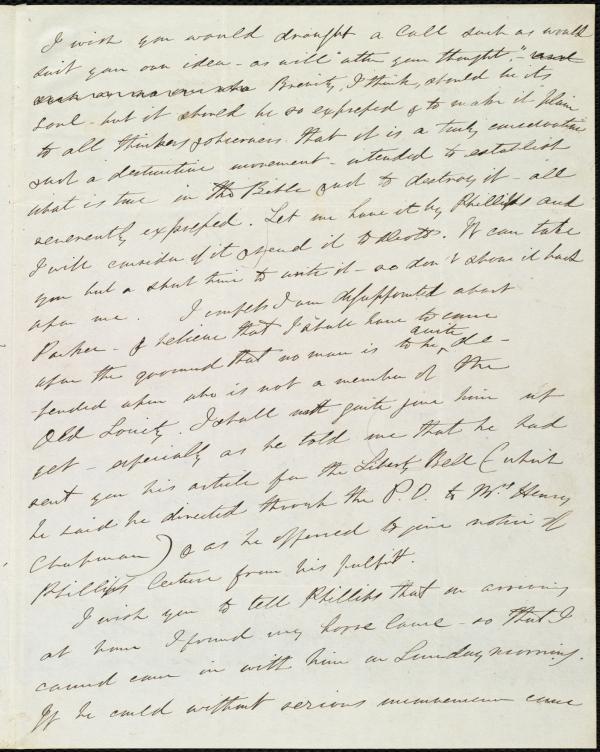 I wish you would draught a Call such as would
suit your own idea - as will "utter your thought."
Brevity, I think, should be its
soul - but it should be so expressed as to make it plain
to all thinkers & observers that it is a truly conservative
not a destructive movement - intended to establish
what is true in the Bible not to destroy it - all
reverently expressed. Let me have it by Phillips and
I will consider of it & send it to It can take
you but a short time to write it - so don't shove it back
upon me. I confess I am disappointed about
Parker - I believe that I shall have to come
upon the ground that no man is to be quite de-
-pended upon who is not a member of the
Old Society. I shall not quite give him up
yet - especially as he told me that he had
sent you his article for the Liberty Bell (which
he said he directed through the P.O. to Mrs. Henry
Chapman) & as he offered to give notice of
Phillips Lecture from his pulpit.
I wish you to tell Phillips that on arriving
at home I found my horse lame - so that I
cannot come in with him on Sunday morning.
If he could without serious inconvenience come